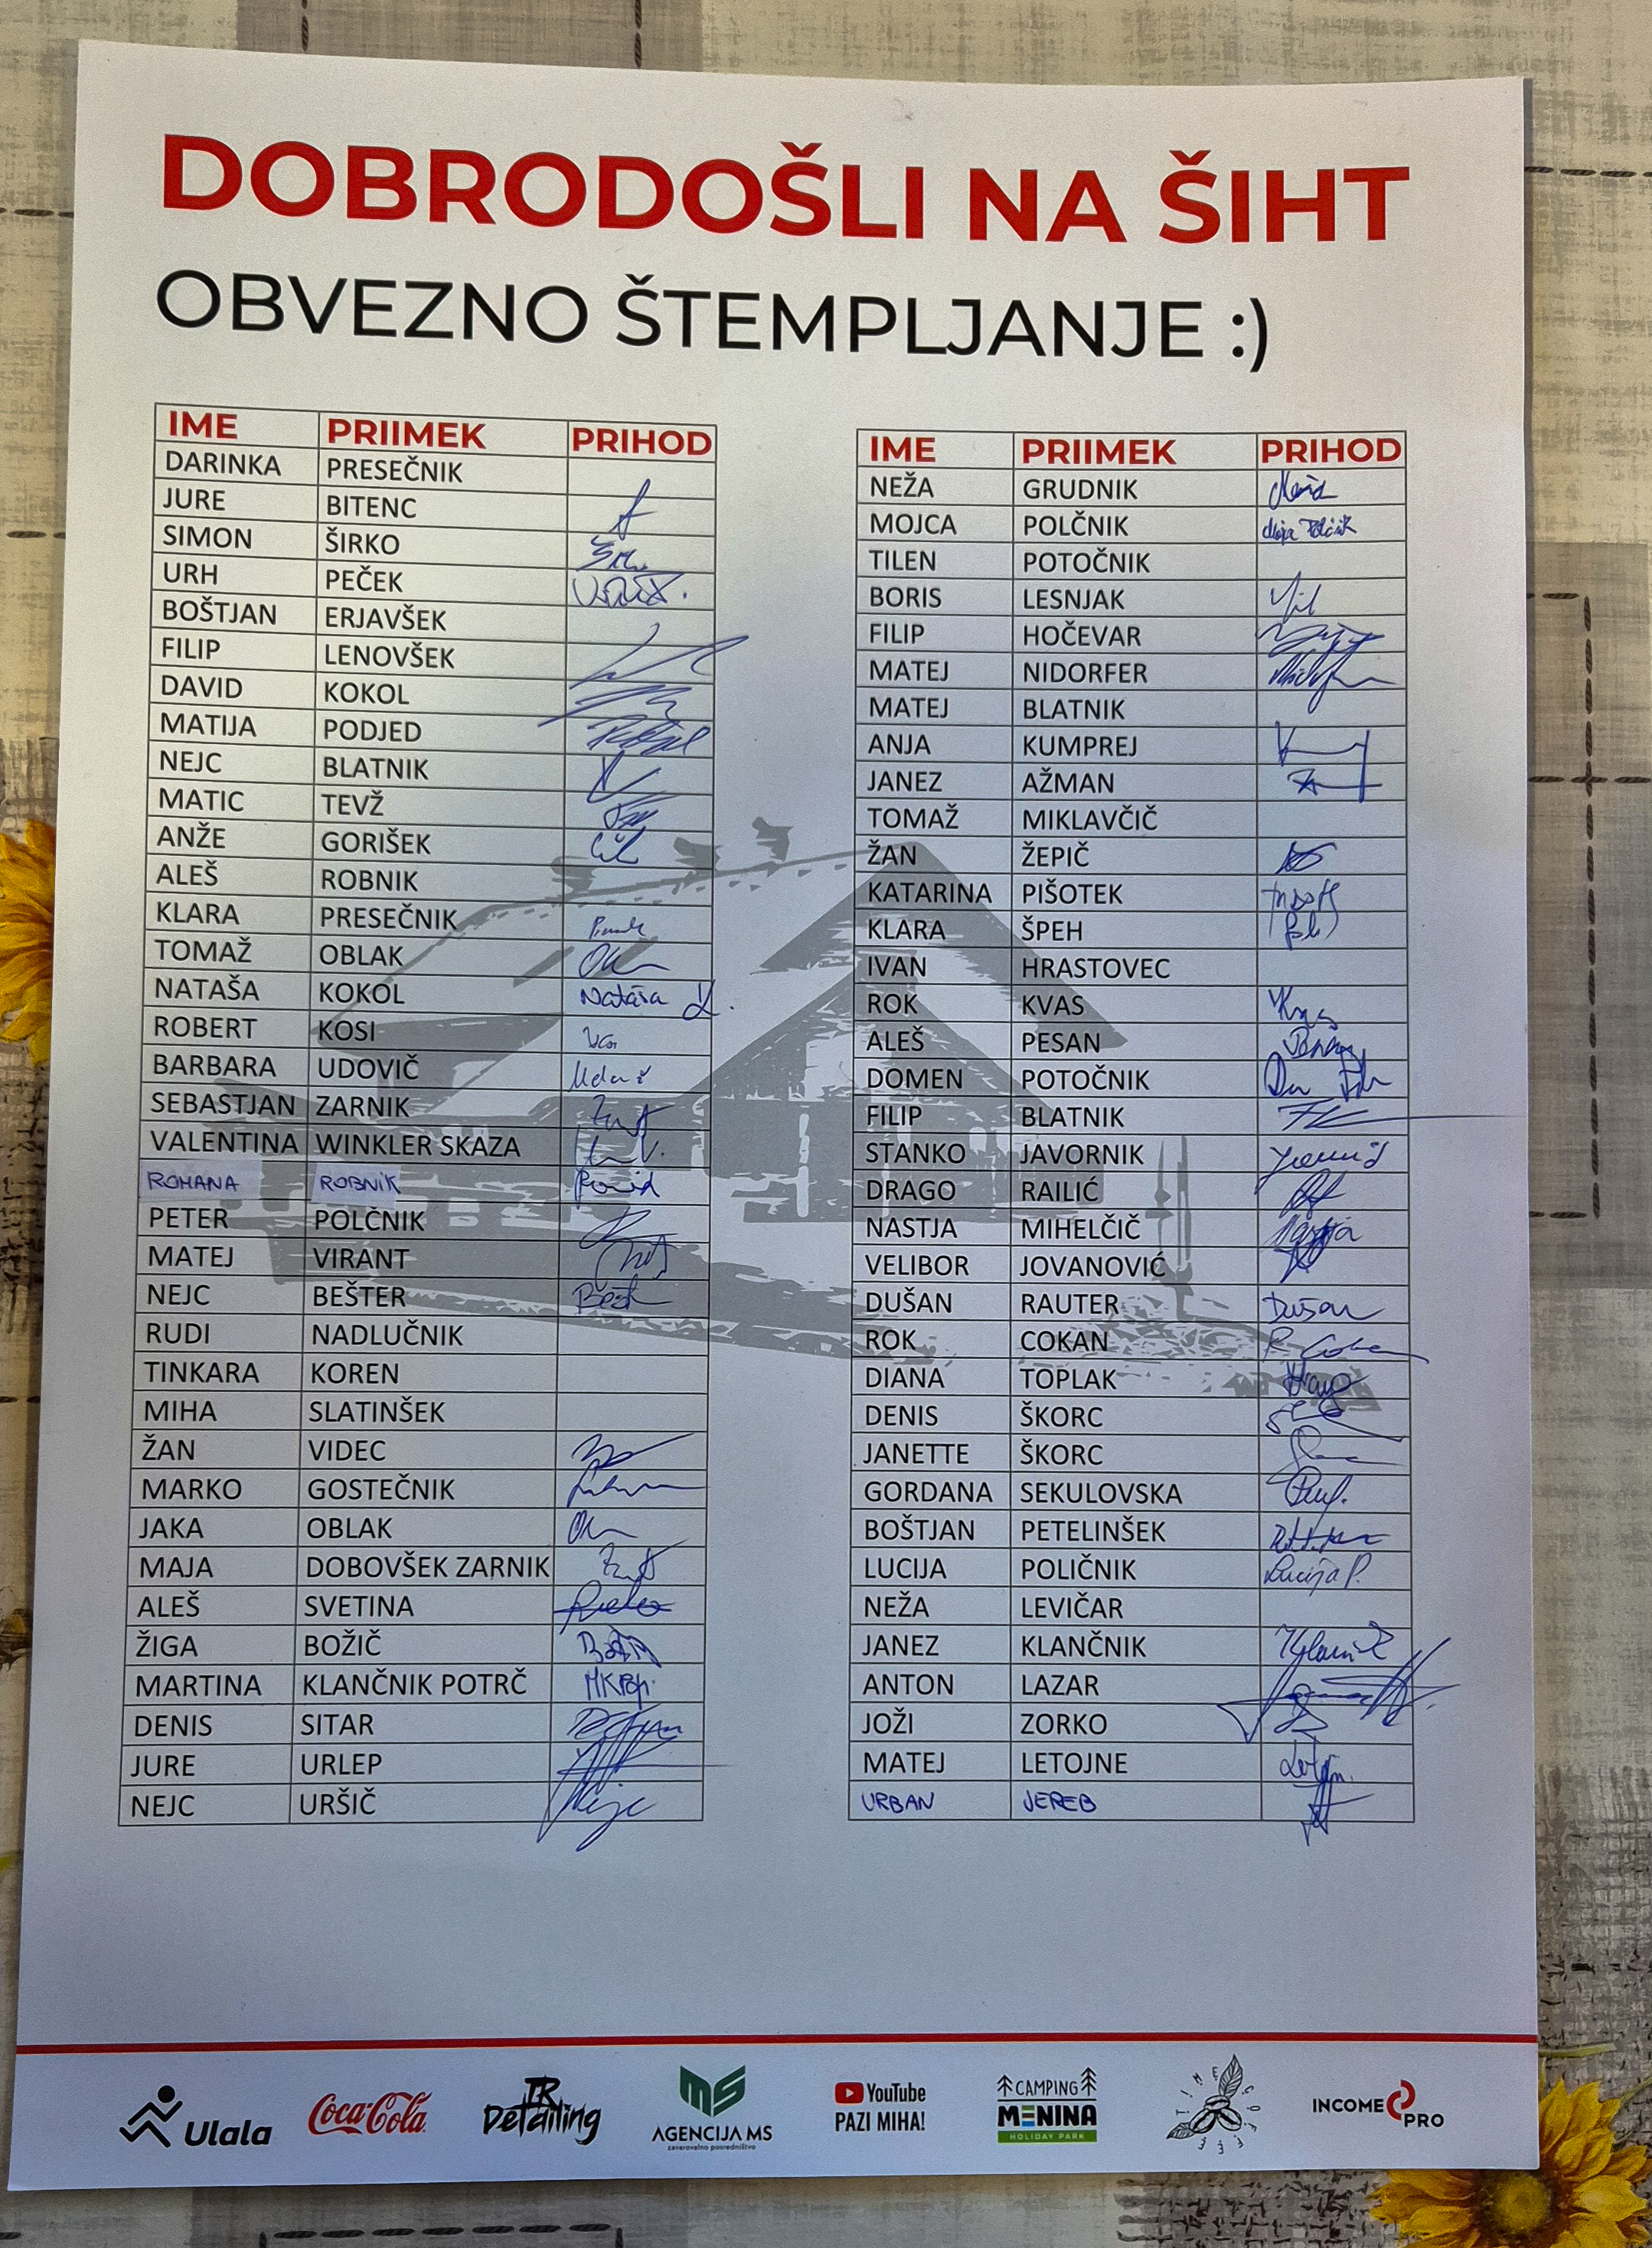 DOBRODOŠLI NA ŠIHT
OBVEZNO ŠTEMPLJANJE :)
IME PRIIMEK PRIHOD
DARINKA PRESEČNIK
JURE BITENC
SIMON ŠIRKO
URH PEČEK
BOŠTJAN ERJAVŠEK
FILIP LENOVŠEK
DAVID KOKOL
MATIJA PODJED
NEJC BLATNIK
MATIC TEVŽ
ANŽE GORIŠEK
ALEŠ ROBNIK
KLARA PRESEČNIK
TOMAŽ OBLAK
NATAŠA KOKOL Nataša K.
ROBERT KOSI
BARBARA UDOVIČ
SEBASTJAN ZARNIK
VALENTINA WINKLER SKAZA
ROMANA ROBNIK
PETER POLČNIK
MATEJ VIRANT
NEJC BEŠTER
RUDI NADLUČNIK
TINKARA KOREN
MIHA SLATINŠEK
ŽAN VIDEC
MARKO GOSTEČNIK
JAKA OBLAK
MAJA DOBOVŠEK ZARNIK
ALEŠ SVETINA
ŽIGA BOŽIČ
MARTINA KLANČNIK POTRČ
DENIS SITAR
JURE URLEP
NEJC URŠIČ
IME PRIIMEK PRIHOD
NEŽA GRUDNIK
MOJCA POLČNIK Mojca Polčnik
TILEN POTOČNIK
BORIS LESNJAK
FILIP HOČEVAR
MATEJ NIDORFER
MATEJ BLATNIK
ANJA KUMPREJ
JANEZ AŽMAN
TOMAŽ MIKLAVČIČ
ŽAN ŽEPIČ
KATARINA PIŠOTEK
KLARA ŠPEH
IVAN HRASTOVEC
ROK KVAS Kvas
ALEŠ PESAN
DOMEN POTOČNIK
FILIP BLATNIK
STANKO JAVORNIK
DRAGO RAILIĆ
NASTJA MIHELČIČ Nastja
VELIBOR JOVANOVIĆ
DUŠAN RAUTER Dušan
ROK COKAN R. Cokan
DIANA TOPLAK
DENIS ŠKORC
JANETTE ŠKORC
GORDANA SEKULOVSKA
BOŠTJAN PETELINŠEK
LUCIJA POLIČNIK Lucija P.
NEŽA LEVIČAR
JANEZ KLANČNIK
ANTON LAZAR
JOŽI ZORKO
MATEJ LETOJNE
URBAN JEREB
Ulala
Coca-Cola
TR Detailing
MS AGENCIJA MS zavarovalno posredništvo
YouTube PAZI MIHA!
CAMPING MENINA HOLIDAY PARK
TIME COFFEE
INCOME PRO